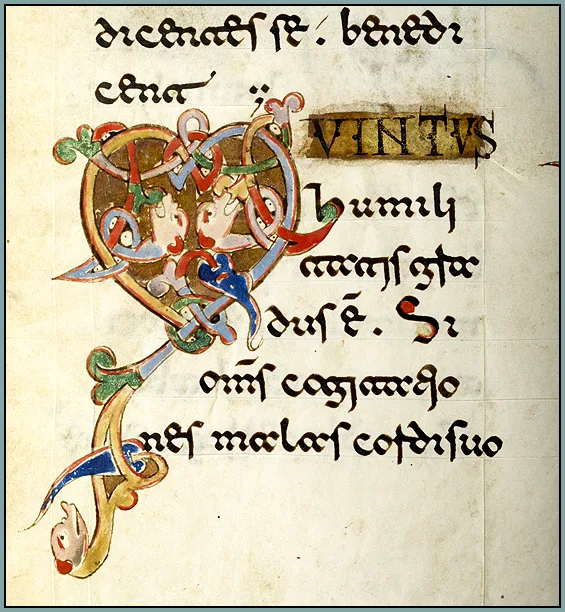 dicentes se . benedi
cent
QVINTVS
humili
tatis gra
dus ē . Si
om̄s cogitatio
nes malas cordi suo